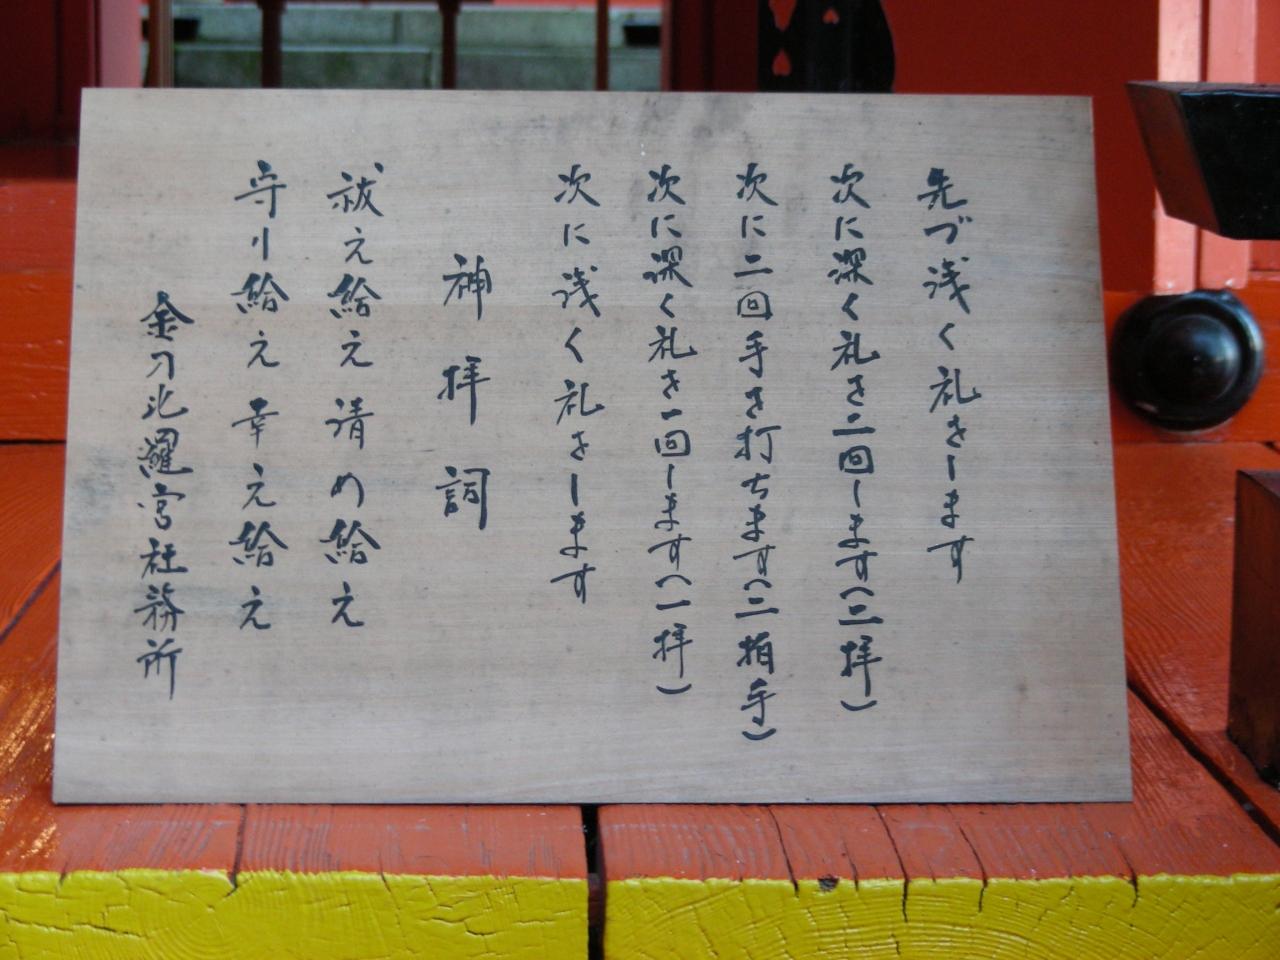 先づ浅く礼をします
次に深く礼を二回します(二拝)
次に二回手を打ちます(二拍手)
次に深く礼を一回します(一拝)
次に浅く礼をします
神拝詞
祓え給え清め給え
守り給え幸え給え
金刀比羅宮社務所